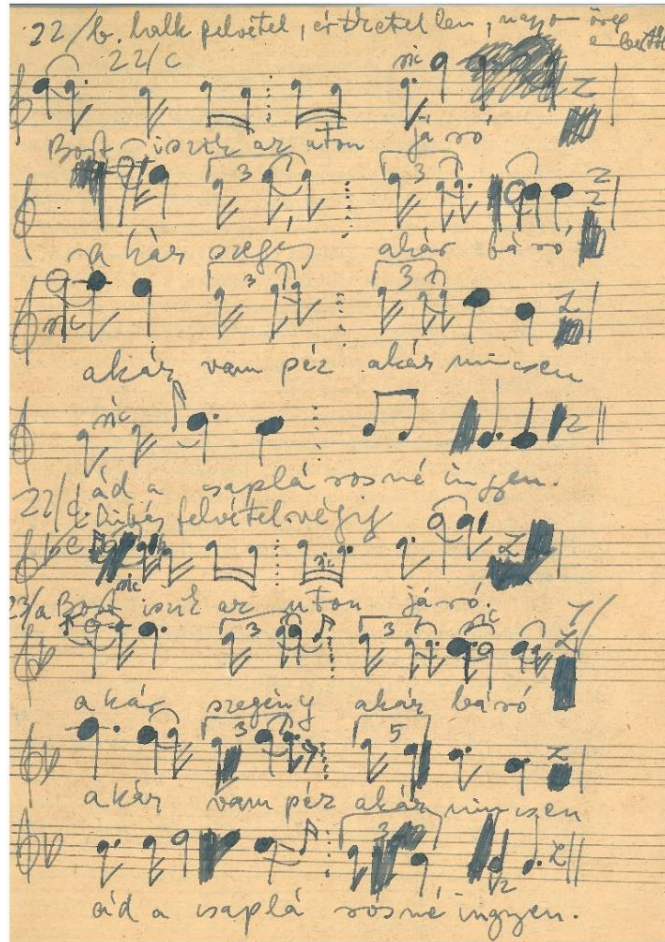 22/b. halk felvétel, érthetetlen, nagyon öreg
22/c
sic
Bort iszik az uton járó
3 3
akár szegény akár báró
3 3
sic
akár vam péz akár nincsen
sic
ád a csaplárosné ingyen.
22/d. hibás felvétel végig
sic sic
23/a Bort iszik az uton járó.
3 3 sic
akár szegény akár báró
3 5
akár vam péz akár nincsen
3
ád a csaplárosné ingyen.